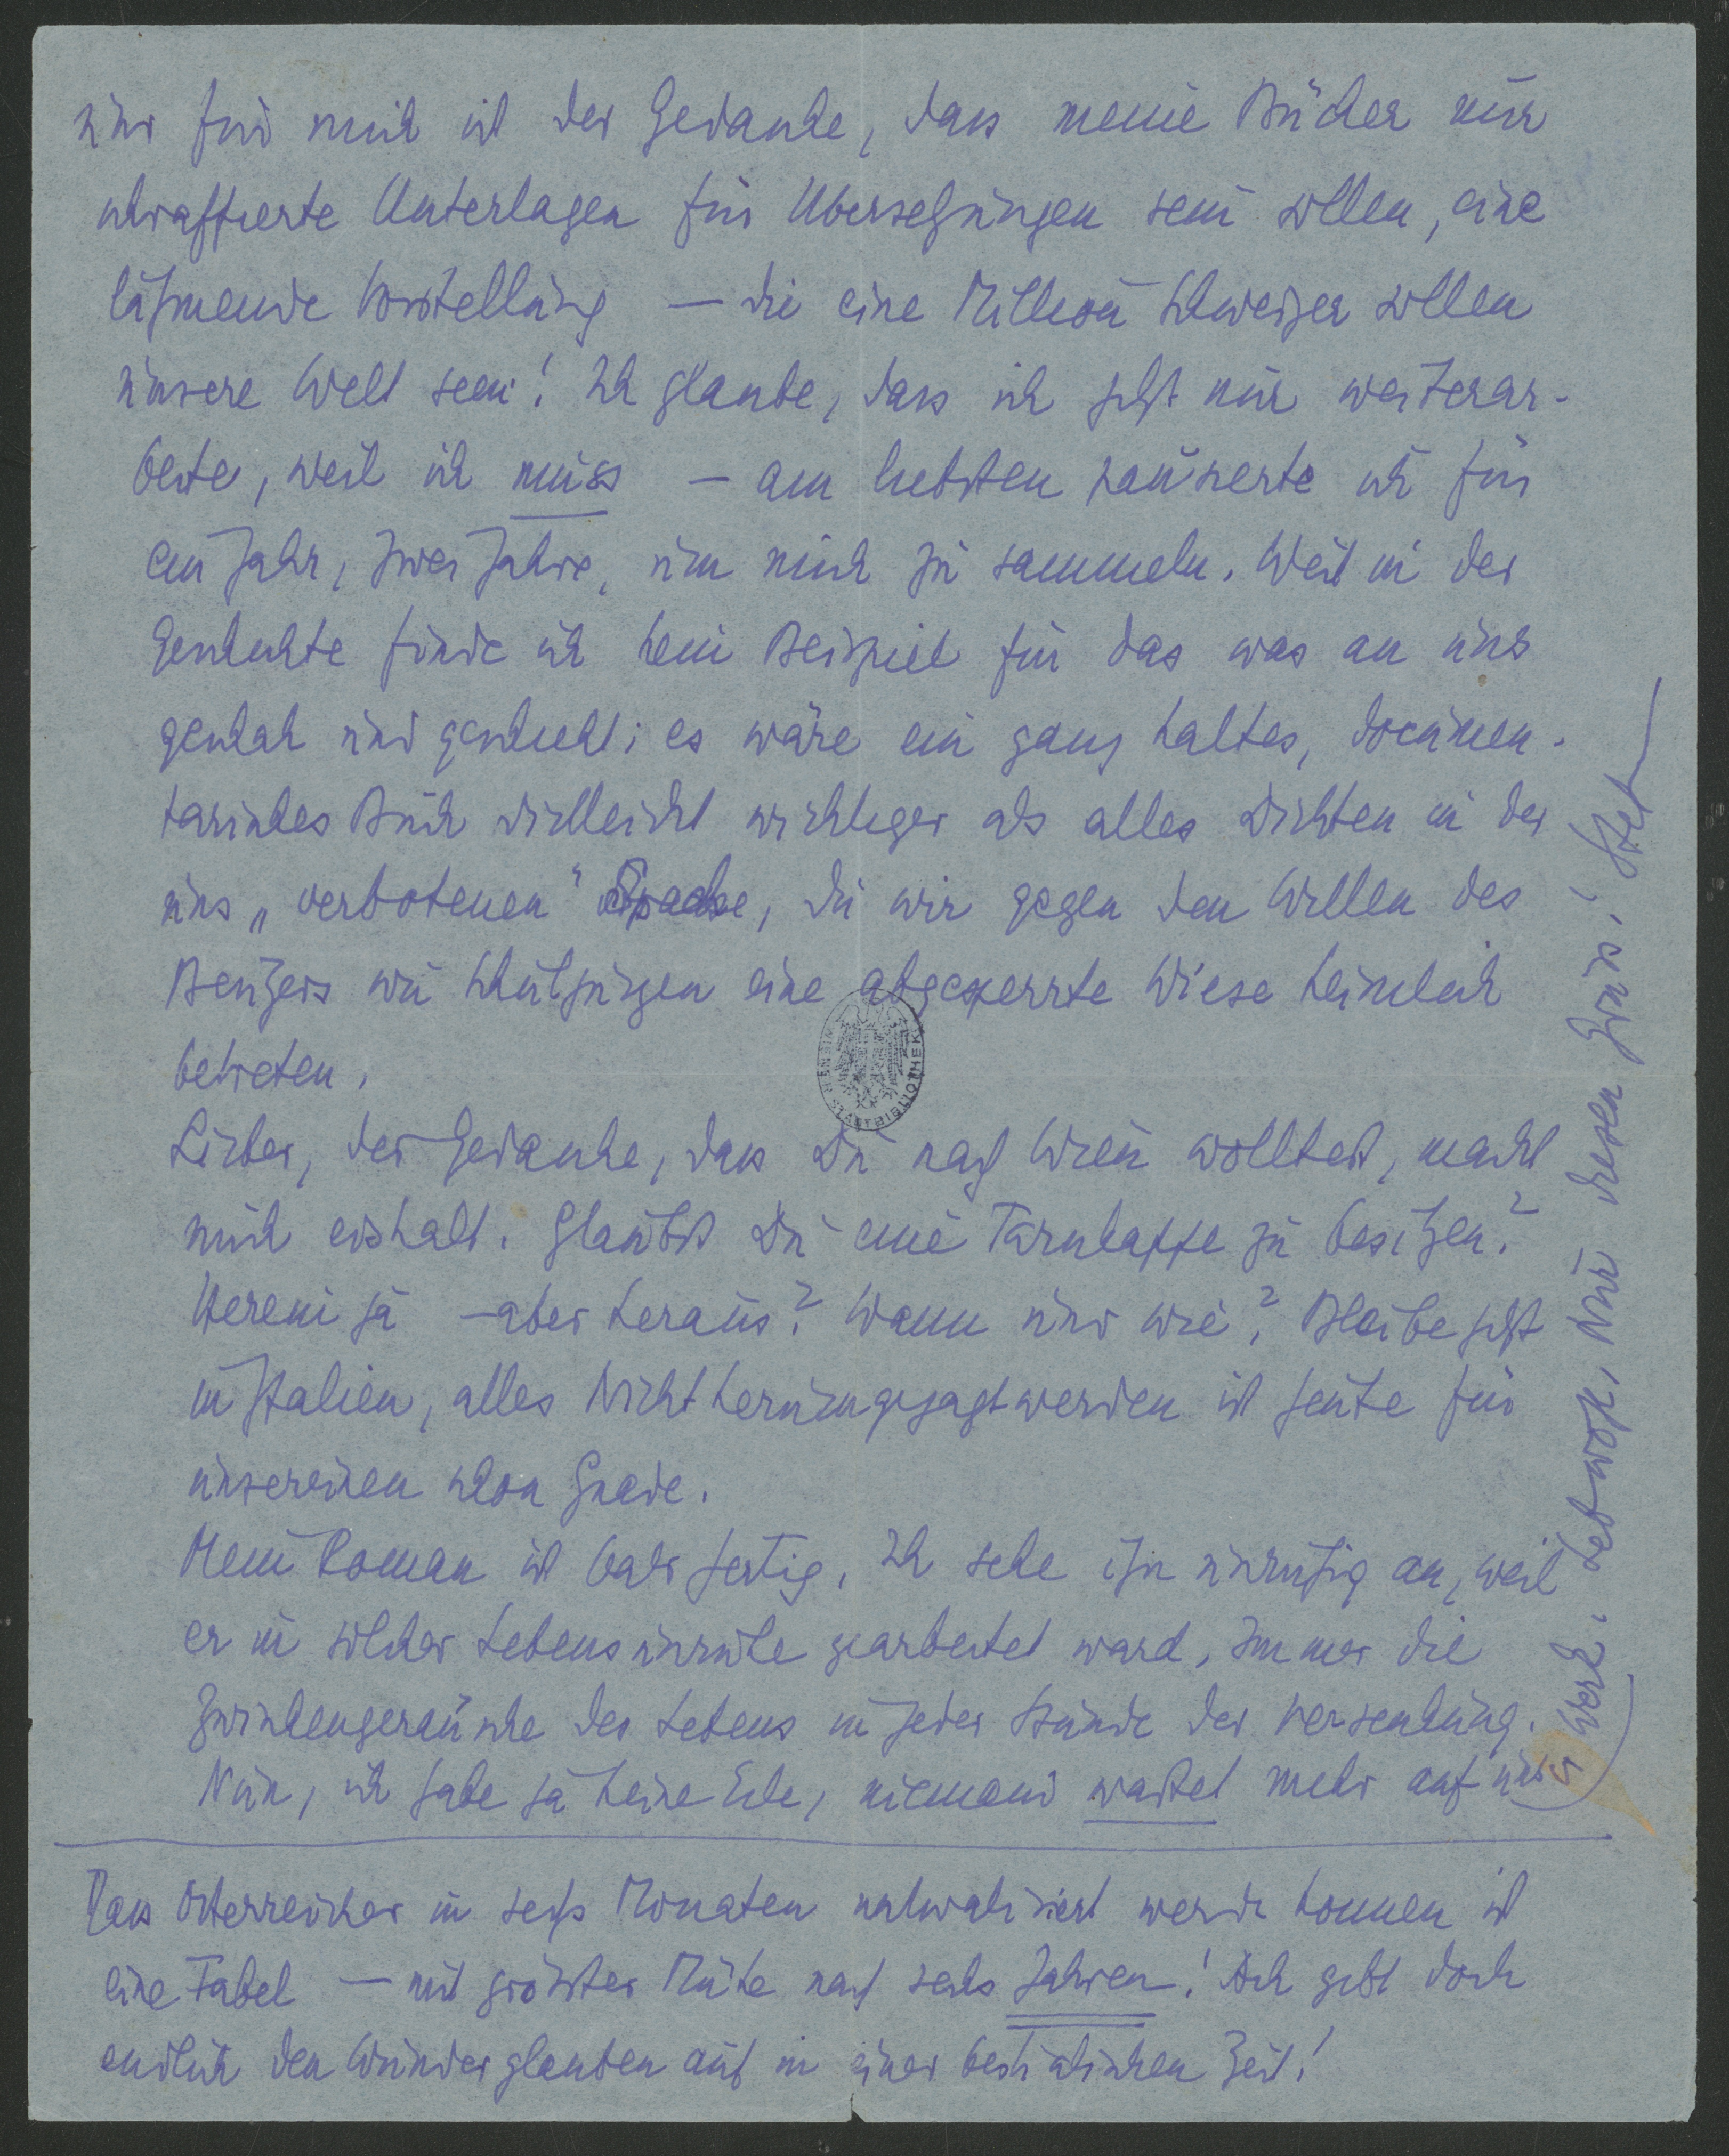 und für mich ist der Gedanke, dass meine Bücher nur
schraffierte Unterlagen für Übersetzungen sein sollen, eine
lähmende Vorstellung — die eine Million Schweizer sollen
unsere Welt sein! Ich glaube, dass ich jetzt nur weiterar-
beite, weil ich muss — am liebsten pausierte ich für
ein Jahr, zwei Jahre, um mich zu sammeln. Weil in der
Geschichte finde ich kein Beispiel für das was an uns
geschah und geschieht; es wäre ein ganz kaltes, documen-
tarisches Buch vielleicht wichtiger als alles Dichten in der
uns „verbotenen" Sprache, die wir gegen den Willen des
Besitzers wie Schuljungen eine abgesperrte Wiese heimlich
betreten.
Lieber, der Gedanke, dass Du nach Wien wolltest, macht
mich eiskalt. Glaubst Du eine Tarnkappe zu besitzen?
Herein ja — aber heraus? Wann und wie? Bleibe jetzt
in Italien, alles Nichtherumgejagtwerden ist heute für
unsereinen schon Gnade.
Mein Roman ist bald fertig. Ich sehe ihn unruhig an, weil
er in solcher Lebensunruhe gearbeitet ward, immer die
Zwischengeräusche des Lebens in jeder Stunde der Versenkung.
Nun, ich habe ja keine Eile, niemand wartet mehr auf uns
Werk. Lebwohl, nur diesen Gruss! Stef
Dass Österreicher in sechs Monaten naturalisiert werde können ist
eine Fabel — mit grösster Mühe nach sechs Jahren! Ach gebt doch
endlich den Wunderglauben auf in einer bestialischen Zeit!
WIENER STADTBIBLIOTHEK